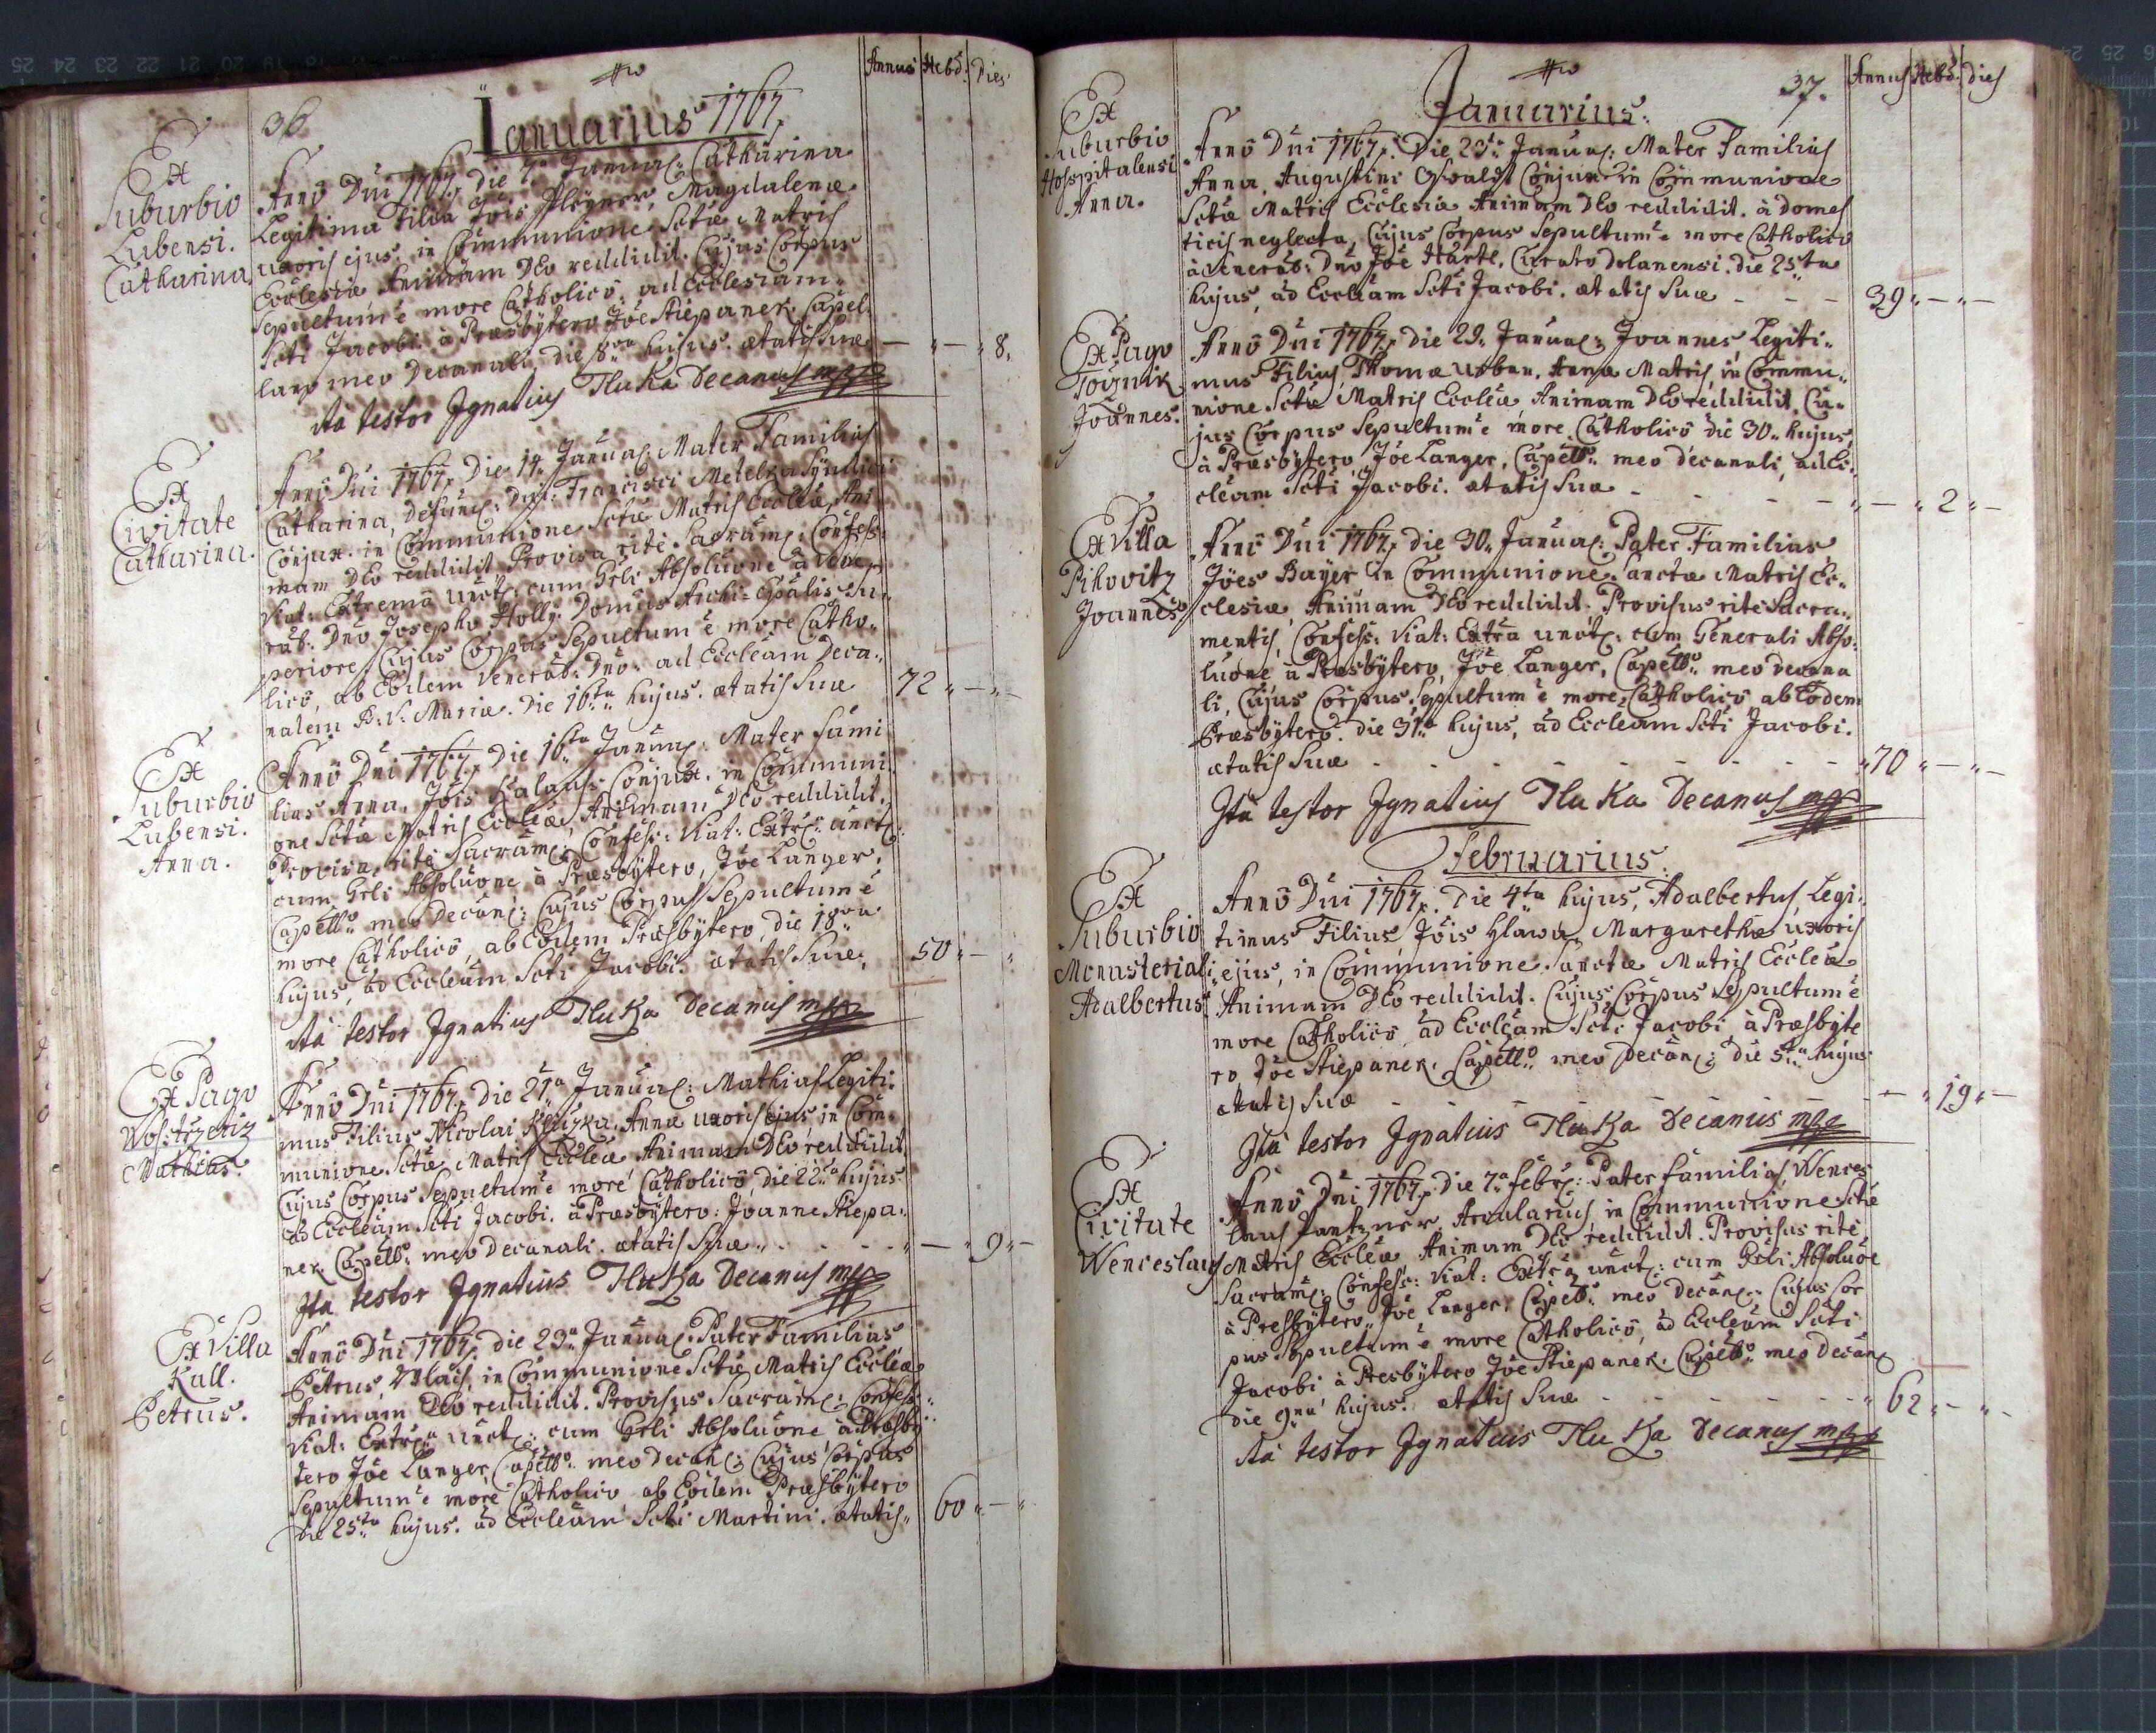 36
Januarius 1767.
Annus Hebd: Dies
Ex
Suburbio
Lubensi.
Catharina
Annô Dni 1767. die 7a Januar: Catharina
Legitima Filia Jois Magdalenæ
uxoris ejus, in Communione Sctæ Matris
Ecclesiæ Animam Deo reddidit. Cujus Corpus
Sepultum ē more Catholicô, ad Ecclesiam
Scti Jacobi à Præsbÿtero Jōe Stiepanek, Capel:
lano meo Decanali, die 8va hujus. ætatis suæ
— " — " 8.
ita testor Jgnatius Tluka Decanus mpp
Ex
Civitate
Catharina.
Annô Dni 1767. Die 14. Januar: Mater Familias
Catharina, Defunc: Dni: Francisci Metelka Sÿndici
Conjux. in Communione Sctæ Matris Eccleæ, Ani
mam Deo reddidit Provisa ritè Sacram: Confess:
Viat: Extremâ unct: cum Grli Absoluōne à Vene
rab: Dno Josepho Hollÿ Domûs Archi-Epālis Su
periore, Cujus Corpus Sepultum ē more Catho„
licô, ab Eodem Venerab: Dno: ad Eccleam Deca„
nalem B: V: Mariæ. Die 16ta hujus. ætatis suæ
72 " — " —
Ex
Suburbio
Lubensi.
Anna.
Annô Dni 1767. Die 16ta Januar: Mater fami
lias Anna, Jōis Conjux. in Communi
one Sctæ Matris Eccleæ, Animam Deo reddidit.
Provisa ritè Sacram: Confess: Viat: Extr: unct:
cum Grli Absoluōne à Præsbÿtero, Jōe Langer,
Capello meo Decan: Cujus Corpus Sepultum ē
more Catholicô, ab Eodem Præsbÿtero, die 18va
hujus, ad Eccleam Scti Jacobi. ætatis suæ,
50 " — "
ita testor Jgnatius Tluka Decanus mpp
Ex Pago
Mathias.
Annô Dni 1767. Die 21a Januar: Mathias Legiti:
mus Filius Nicolai Annæ uxoris ejus, in Com
munione Sctæ Matris Eccleæ Animam Deo reddidit.
Cujus Corpus Sepultum ē more Catholicô, die 22da hujus
ad Eccleam Scti Jacobi. à Præsbÿtero: Joanne Stiepa:
nek Capello: meo Decanali. ætatis suæ
" — " 9 " —
Ita testor Jgnatius Tluka Decanus mpp
Ex Villa
Kall.
Petrus.
Annô Dni 1767. die 23a Januar: Pater Familias
Petrus, in Communione Sctæ Matris Eccleæ
Animam Deo reddidit. Provisus Sacram: Confess:
Viat: Extr: unct: cum Grli Absoluōne à Præsbÿ
tero Jōe Langer, Capello: meo Decan: Cujus Corpus
Sepultum ē more Catholico ab Eodem Præsbÿtero
die 25ta hujus. ad Eccleam Scti Martini. ætatis„
60 " — "
37.
Januarius.
Annus Hebd: dies
Ex
Suburbio
Hospitalensi
Anna.
Annô Dni 1767. Die Januar: Mater Familias
Anna, Augustini Oswaldt Conjux in Communione
Sctæ Matris Ecclesiæ Animam Deo reddidit. à domes
ticis neglecta, Cujus Corpus Sepultum ē more Catholico
à Venerab: Dno Jōe Hartl, Curato Dolanensi. die 25ta
hujus, ad Eccleam Scti Jacobi. ætatis suæ - - -
39 " — " —
Ex Pago
Joannes.
Annô Dni 1767. die 29. Januar: Joannes, Legiti„
mus Filius, Thomæ Urban, Annæ Matris, in Commu„
nione Sctæ Matris Eccleæ, Animam Deo reddidit, Cu„
jus Corpus Sepultum ē more Catholicô die 30. hujus,
à Præsbÿtero, Jōe Langer, Capello: meo decanali, ad Ec:
cleam Scti Jacobi. ætatis suæ - - - -
" — " 2 " —
Ex Villa
Pikovitz
Joannes
Annô Dni 1767. die 30. Januar: Pater Familias
Jōes Bayer in Communione Sanctæ Matris Ec„
clesiæ, Animam Deo reddidit. Provisus ritè Sacra„
mentis, Confess: Viat: Extrā unct: cum Generali Abso:
luōne à Præsbÿtero, Jōe Langer, Capello: meo decana
li, Cujus Corpus Sepultum ē more Catholicô ab Eodem
Præsbÿtero. die 31a hujus, ad Eccleam Scti Jacobi.
ætatis suæ - - - - - - -
70 " — " —
Ita testor Jgnatius Tluka Decanus mpp
Februarius.
Ex
Suburbio
Monasteriali
Adalbertus
Annô Dni 1767. Die 4ta hujus, Adalbertus, Legi:
timus Filius, Jōis Hlawa, Margarethæ uxoris
ejus, in Communione Sanctæ Matris Eccleæ
Animam Deo reddidit. Cujus Corpus Sepultum ē
more Catholicô ad Eccleam Scti Jacobi à Præsbÿte
ro, Jōe Stiepanek, Capello: meo Decan: die 5ta hujus
ætatis suæ - - - - - - -
— " 19 " —
Ita testor Jgnatius Tluka Decanus mpp
Ex
Civitate
Wenceslaus
Annô Dni 1767. Die 7a febr: Pater familias, Wences
laus Arcularius in Communione Sctæ
Matris Eccleæ Animam Deo reddidit. Provisus ritè
Sacram: Confess: Viat: Extrā unct: cum Grli Absoluōe
à Presbÿtero, Jōe Langer, Capello: meo Decan: Cujus Cor
pus Sepultum ē more Catholicô, ad Eccleam Scti
Jacobi à Presbÿtero Jōe Stiepanek, Capello: meo Decan:
die 9na hujus. ætatis suæ - - - -
62 " — " —
ita testor Jgnatius Tluka Decanus mpp